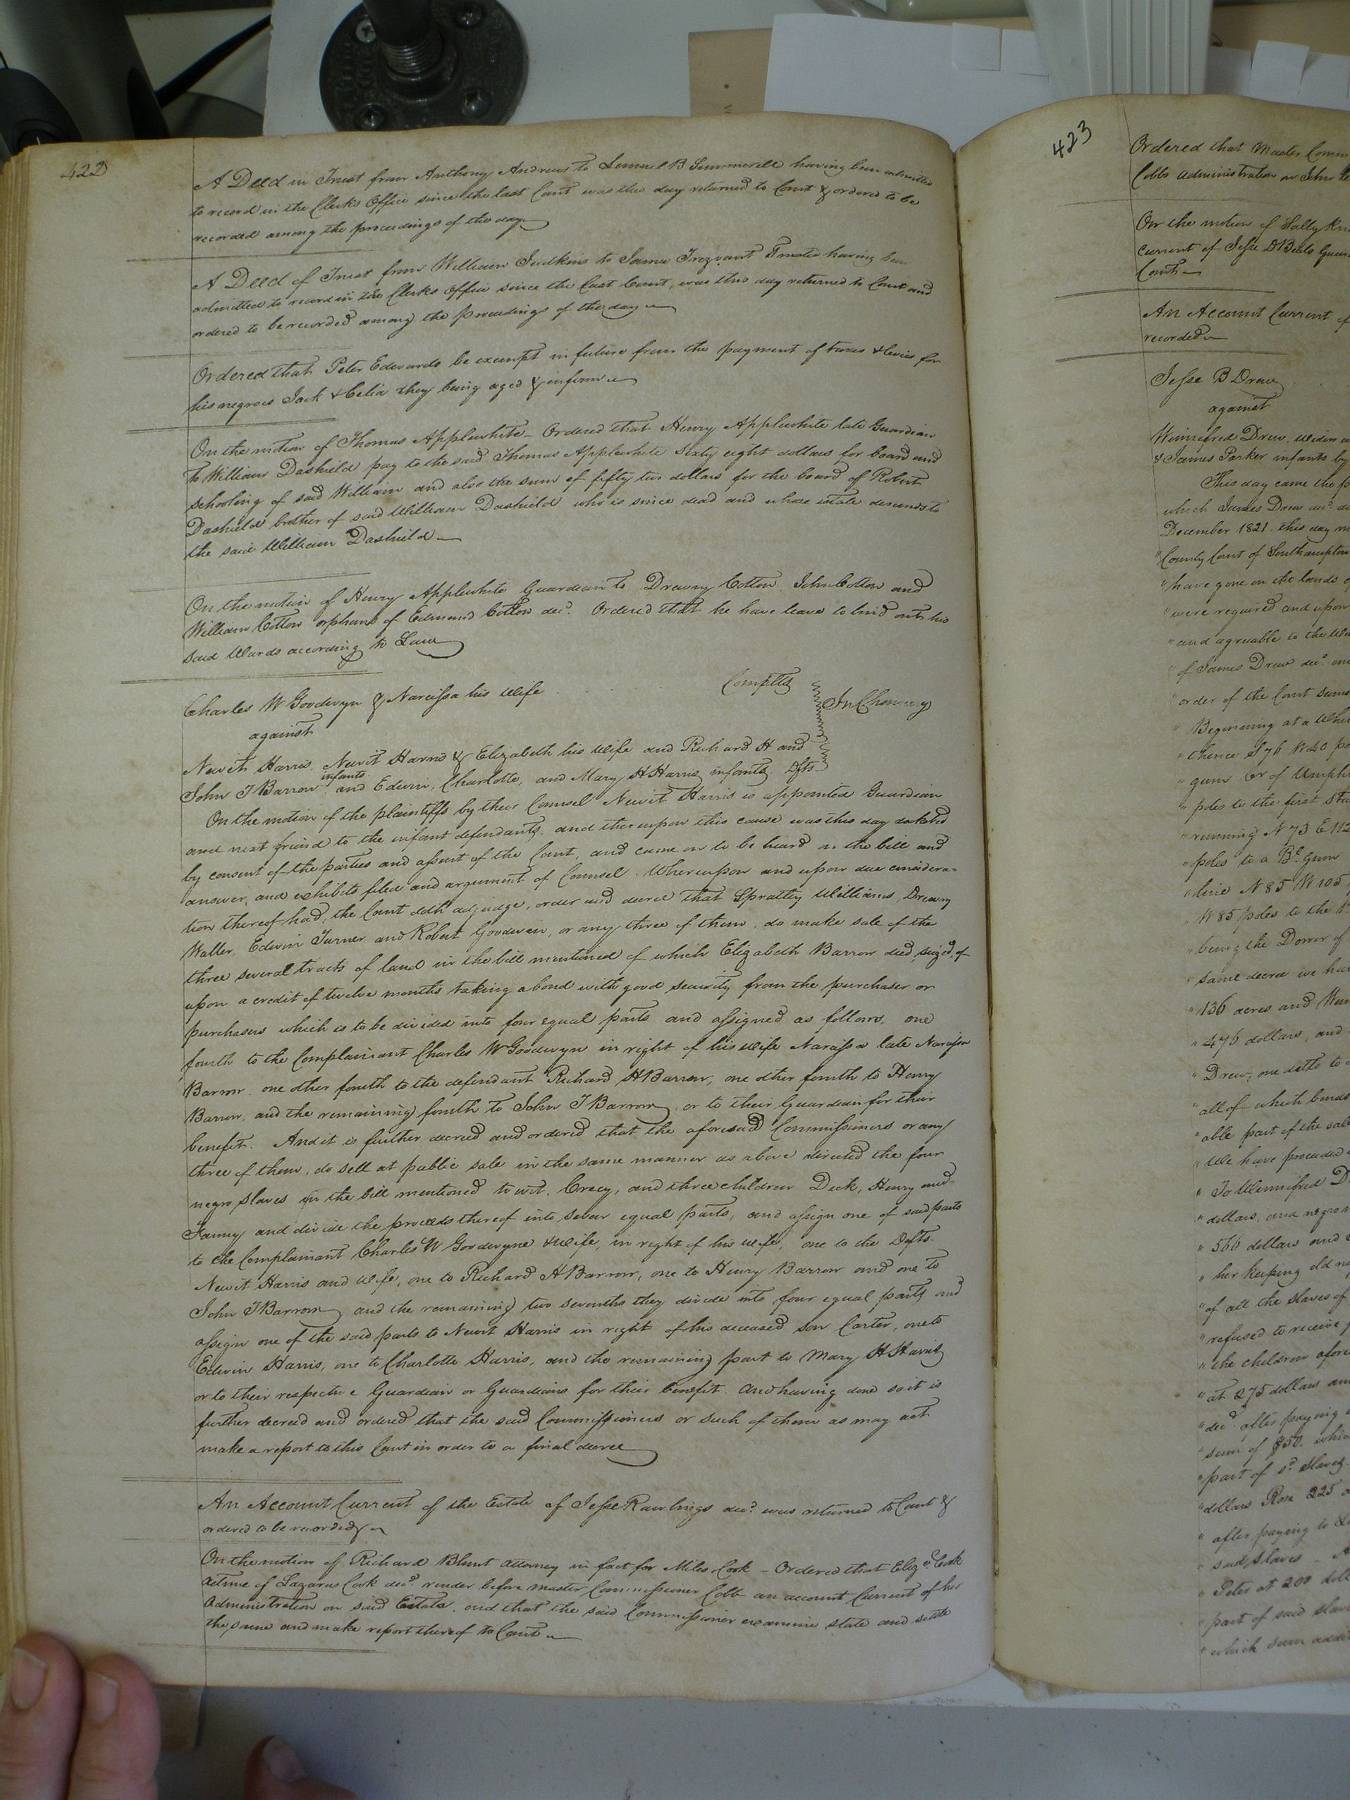 422
A Deed in Trust from Anthony Andrews to Lemuel B Summerell having been admitted
to record in the Clerks Office since the last Court was this day returned to Court & ordered to be
recorded among the proceedings of the day
A Deed of Trust from William Judkins to James Trezvant Trustee having been
admitted to record in the Clerks Office since the last Court, was this day returned to Court and
ordered to be recorded among the proceedings of the day
Ordered that Peter Edwards be exempt in future from the payment of taxes & levies for
his negroes Jack & Celia they being aged & infirm
On the motion of Thomas Applewhite - Ordered that Henry Applewhite late Guardian
to William Dashield pay to the said Thomas Applewhite Sixty eight dollars for board and
schooling of said William and also the sum of fifty two dollars for the board of Robert
Dashield brother of said William Dashield who is since dead and whose estate descends to
the said William Dashield
On the motion of Henry Applewhite Guardian to Drewry Cotton John Cotton and
William Cotton orphans of Edmund Cotton decd. Ordered that he have leave to bind out his
said Wards according to Law
Charles W Goodwyn & Narcissa his wife Complts
against In Chancery
Newit Harris Newit Harris & Elizabeth his wife and Richard H and
John T Barrow infants and Edwin, Charlotte, and Mary H Harris infants Dfts
On the motion of the plaintiffs by their Counsel Newit Harris is appointed Guardian
and next friend to the infant defendants, and thereupon this cause was this day docketed
by consent of the parties and assent of the Court, and came on to be heard on the bill and
answer, and exhibits filed and argument of Counsel. Whereupon and upon due considera-
tion thereof had, the Court doth adjudge, order and decree that Spratley Williams, Drewry
Waller, Edwin Turner and Robert Goodwin, or any three of them, do make sale of the
three several tracts of land in the bill mentioned of which Elizabeth Barrow died seized, of
upon a credit of twelve months taking a bond with good security from the purchaser or
purchasers which is to be divided into four equal parts and assigned as follows, one
fourth to the Complainant Charles W Goodwyn in right of his wife Narcissa late Narcissa
Barrow one other fourth to the defendant Richard H Barrow, one other fourth to Henry
Barrow, and the remaining fourth to John T Barrow, or to their Guardian for their
benefit. And it is further decreed and ordered that the aforesaid Commissioners or any
three of them, do sell at public sale in the same manner as above directed the four
negro slaves in the bill mentioned to wit, Creecy, and three children Dick, Henry and
Fanny and divide the proceeds thereof into seven equal parts, and assign one of said parts
to the Complainant Charles W Goodwyne & wife, in right of his wife, one to the Defts.
Newit Harris and wife, one to Richard H Barrow, one to Henry Barrow and one to
John T Barrow and the remaining two sevenths they divide into four equal parts and
assign one of the said parts to Newit Harris in right of his deceased son Carter, one to
Edwin Harris, one to Charlotte Harris, and the remaining part to Mary H Harris
or to their respective Guardian or Guardians for their benefit. And having done so it is
further decreed and ordered that the said Commissioners or such of them as may act
make a report to this Court in order to a final decree
An Account Current of the Estate of Jesse Rawlings decd. was returned to Court &
ordered to be recorded
On the motion of Richard Blunt attorney in fact for Miles Cook - Ordered that Elizth. Cook
admx of Lazarus Cook decd. render before master Commissioner Cobb an account Current of her
Administration on said Estate, and that the said Commissioner examine state and settle
the same and make report thereof to Court
423
Ordered that Master Comm
Cobbs administration on John
On the motion of Sally
Current of Jesse D Beale Guard
Court
An Account Current of
recorded
Jesse B Drew
against
Winnefred Drew, widow
& James Parker infants by
This day came the
which James Drew
December 1821. this day
"County Court of Southampton
"have gone on the lands
"were required and upon
"and agreeable to the
"of James Drew decd.
"order of the Court
"Beginning at a White
"thence S76 W40 po
"gum Cr of Umphr
"poles to the first Sta
"running N73 E112
"poles to a Be. Gum
"line N85 W105
"W85 poles to the
"being the Dower of
"same decree we have
"136 acres and
"476 dollars, and
"Drew, one
"all of which
"able part of the
"We have proceeded
"To Winnifred D
"dollars, and negro
"560 dollars and
"her keeping old
"of all the slaves of
"refused to receive
"the children afore
"at 275 dollars and
"decd. after paying
"sum of $50. which
"part of sd. slaves
"dollars Rose 225
"after paying to
"said slaves
"Peter at 200 doll
"part of said slave
"which sum added